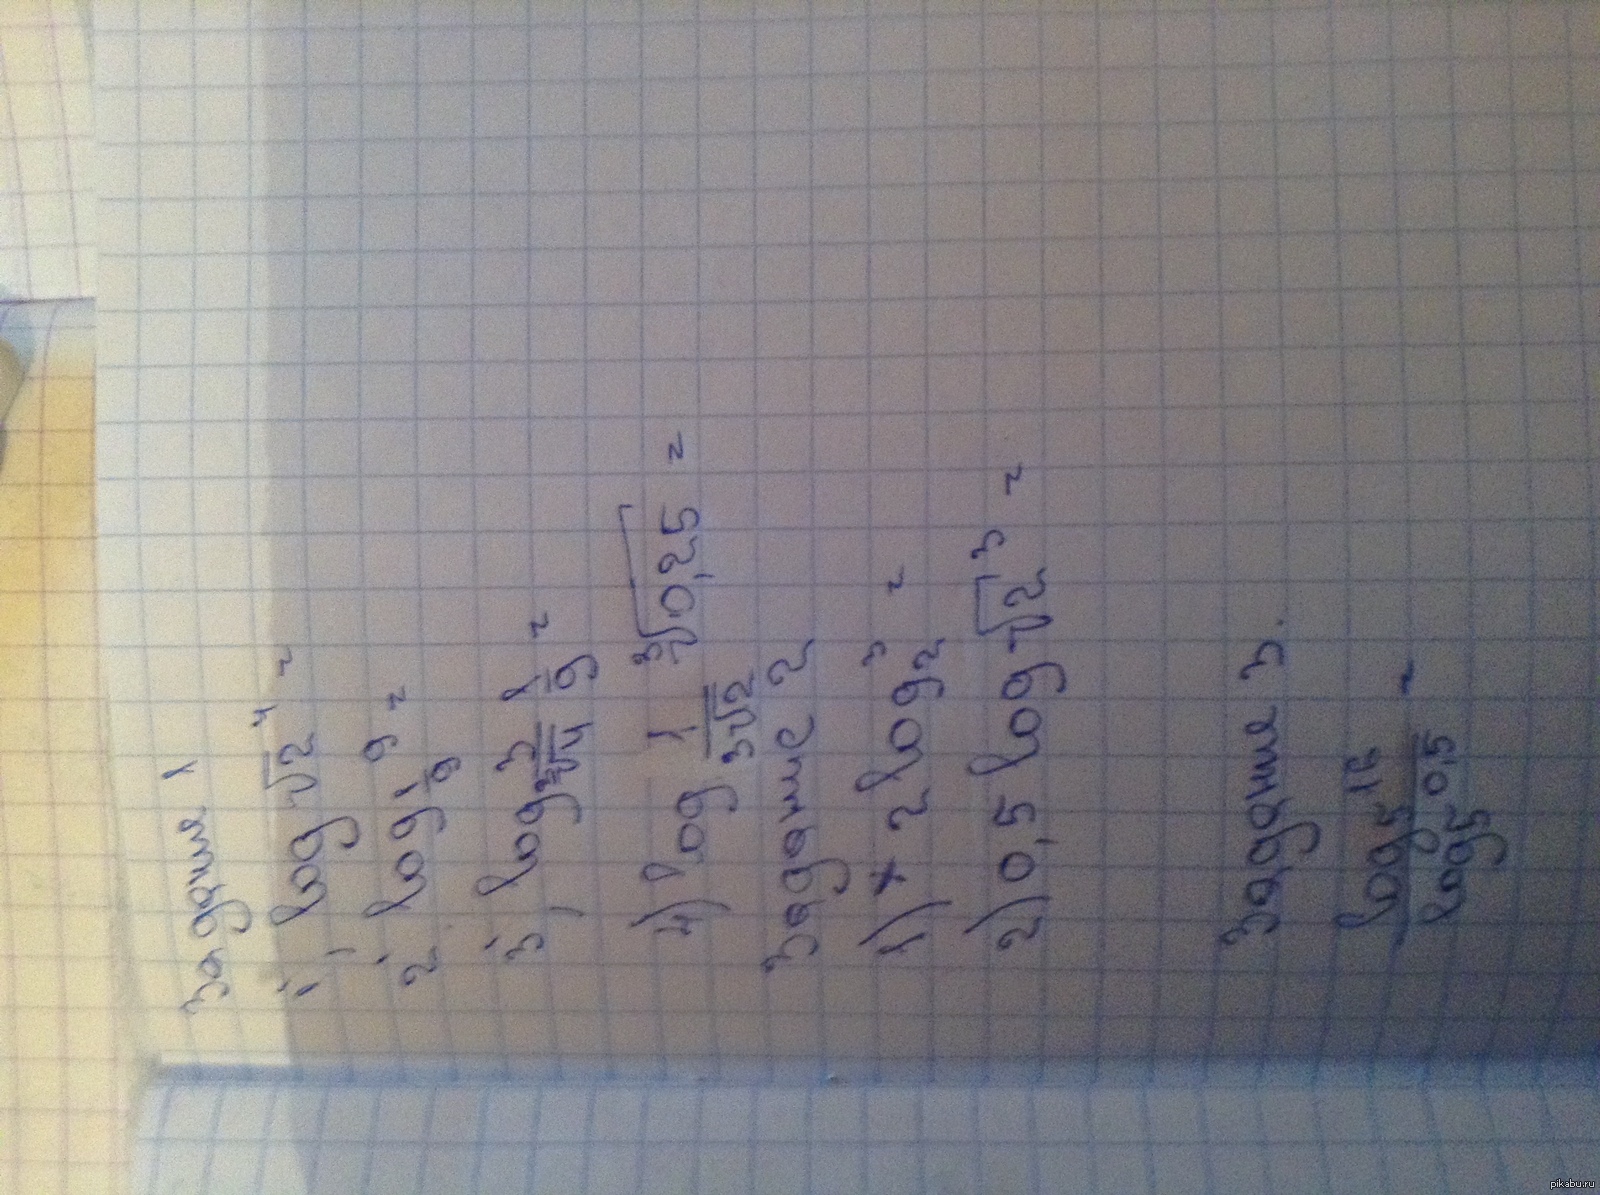 Задание 1
1) log √2 4 =
2) log 1/9 9 =
3) log
4) log 1/3√2 ³√0,25 =
Задание 2
1) 7 2 log₂ 3 =
2) 0,5 log √2 3 =
Задание 3.
log₅ 16 / log₅ 0,5 =
pikabu.ru